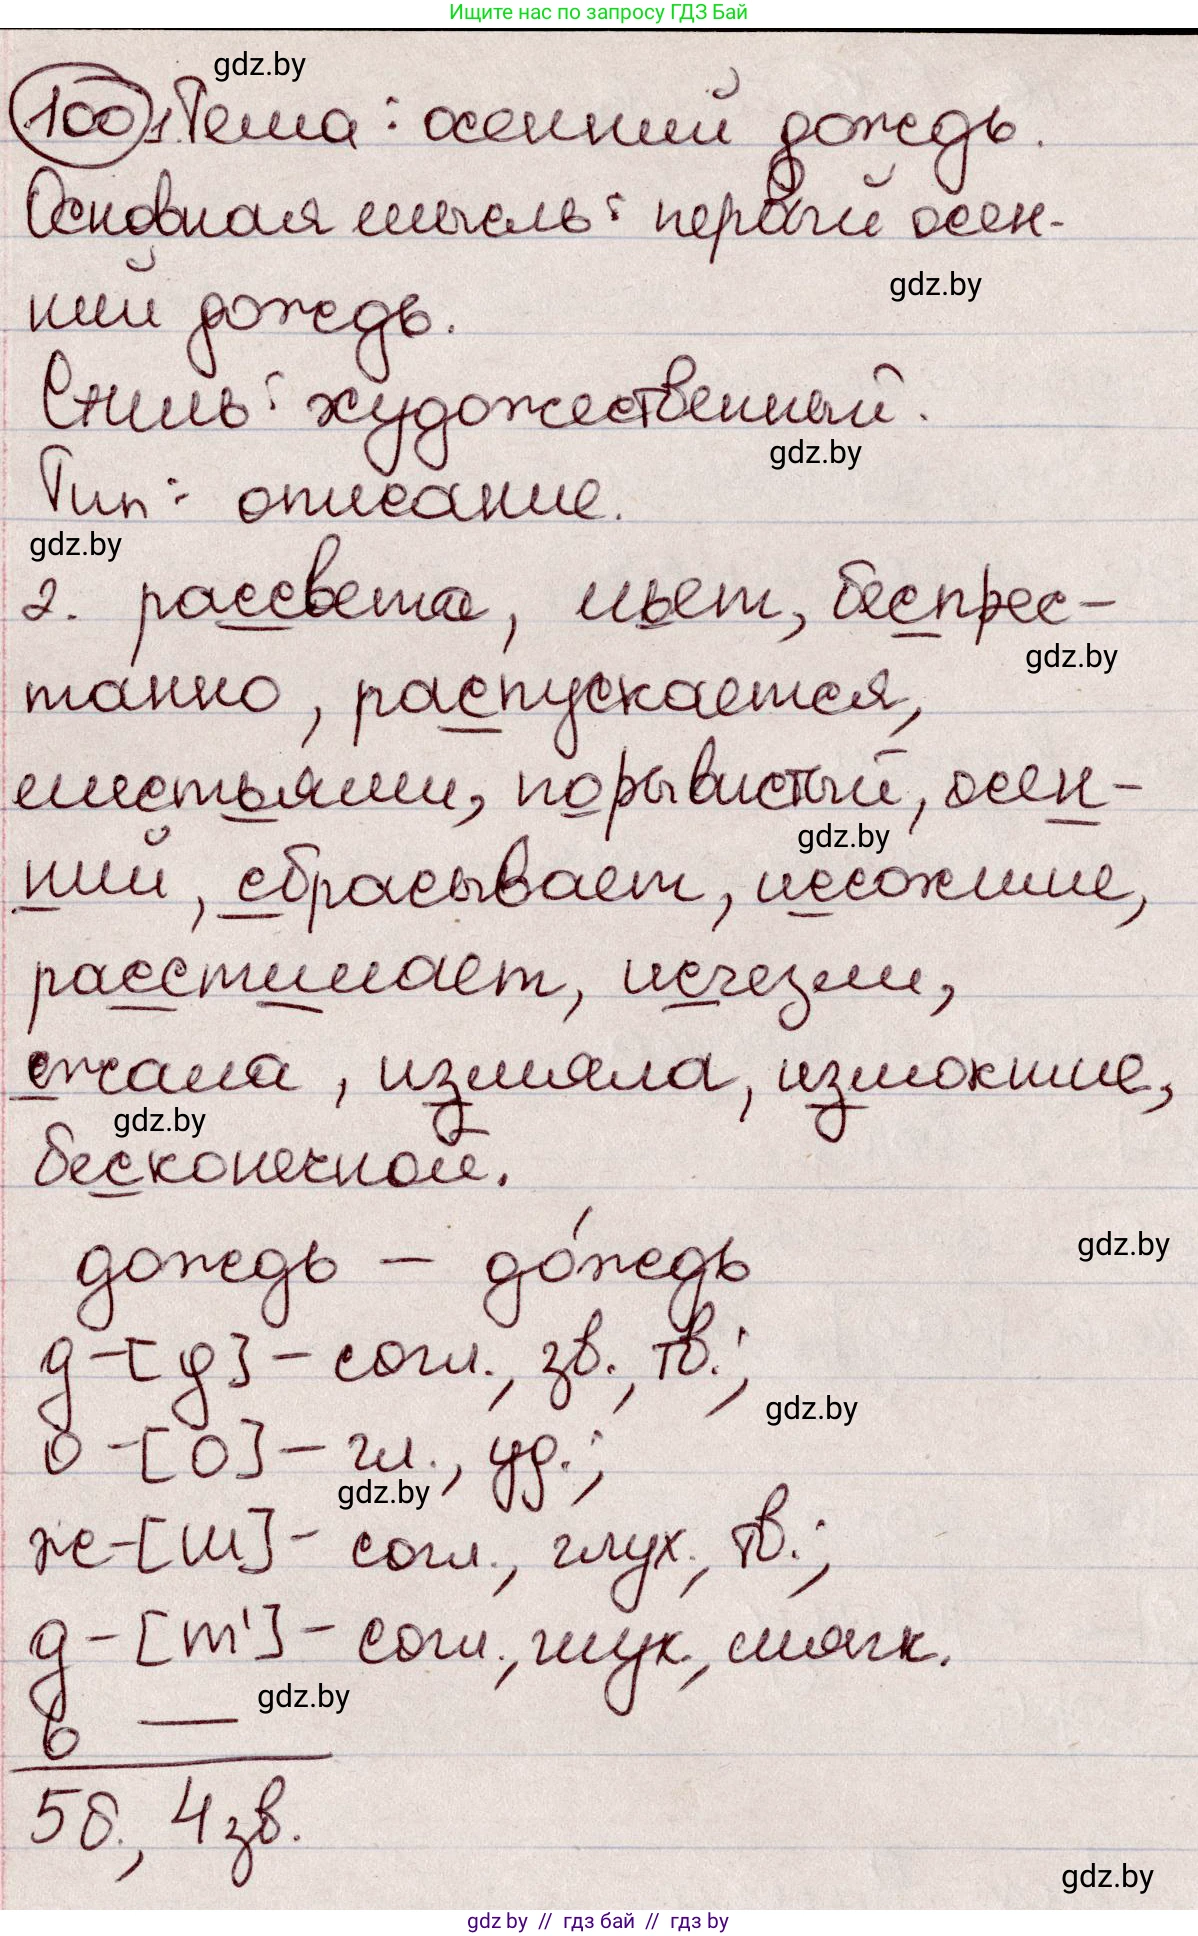 Ищите нас по запросу ГДЗ Бай
gdz.by
100 1. Тема: осенний дождь.
Основная мысль: первый осен-
gdz.by
ний дождь.
Стиль: художественный.
gdz.by
Тип: описание.
gdz.by
2. рассвета, льет, беспрес-
gdz.by
танно, распускается,
листьями, порывистый, осен-
gdz.by
ний, сбрасывает, иссохшие,
расстилает, исчезли,
сжала, измяла, измокшие,
gdz.by
бесконечной.
дождь – до́ждь
gdz.by
д – [д] – согл., зв., тв.;
gdz.by
о – [о] – гл., уд.;
gdz.by
ж – [ш] – согл., глух., тв.;
д – [т'] – согл., глух., мягк.
gdz.by
ь —
5б., 4 зв.
gdz.by
gdz by // гдз бай // гдз by